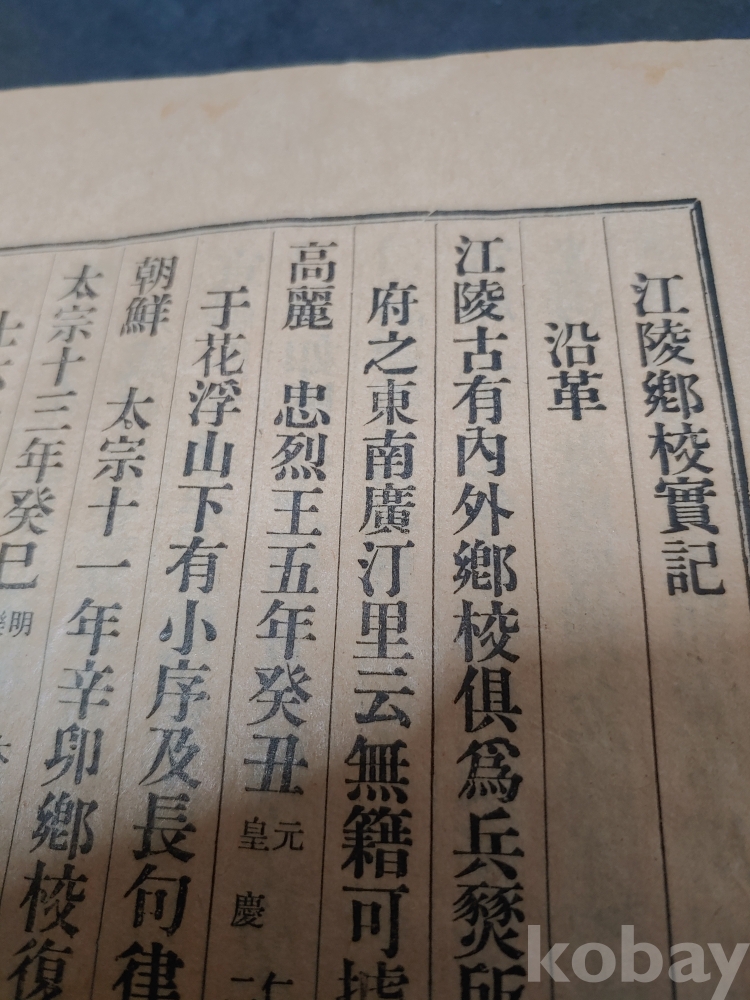 江陵鄕校實記
沿革
江陵古有內外鄕校俱爲兵燹所
府之東南廣汀里云無籍可據
高麗 忠烈王五年癸丑 元皇慶二
于花浮山下有小序及長句律
朝鮮 太宗十一年辛卯鄕校復
太宗十三年癸巳 明
kobay